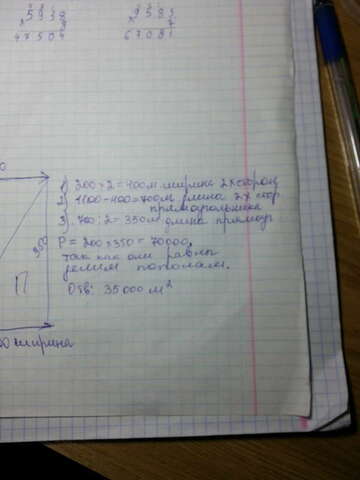 5938
× 8
47504
9583
× 7
67081
1) 200×2=400м ширина 2х сторон
2) 1100-400=700м длина 2х стор
прямоугольника
3) 700:2=350м длина прямоуг
P=200×350=70000,
так как они равны
делим пополам.
Отв: 35000 м²
350
П
ширина